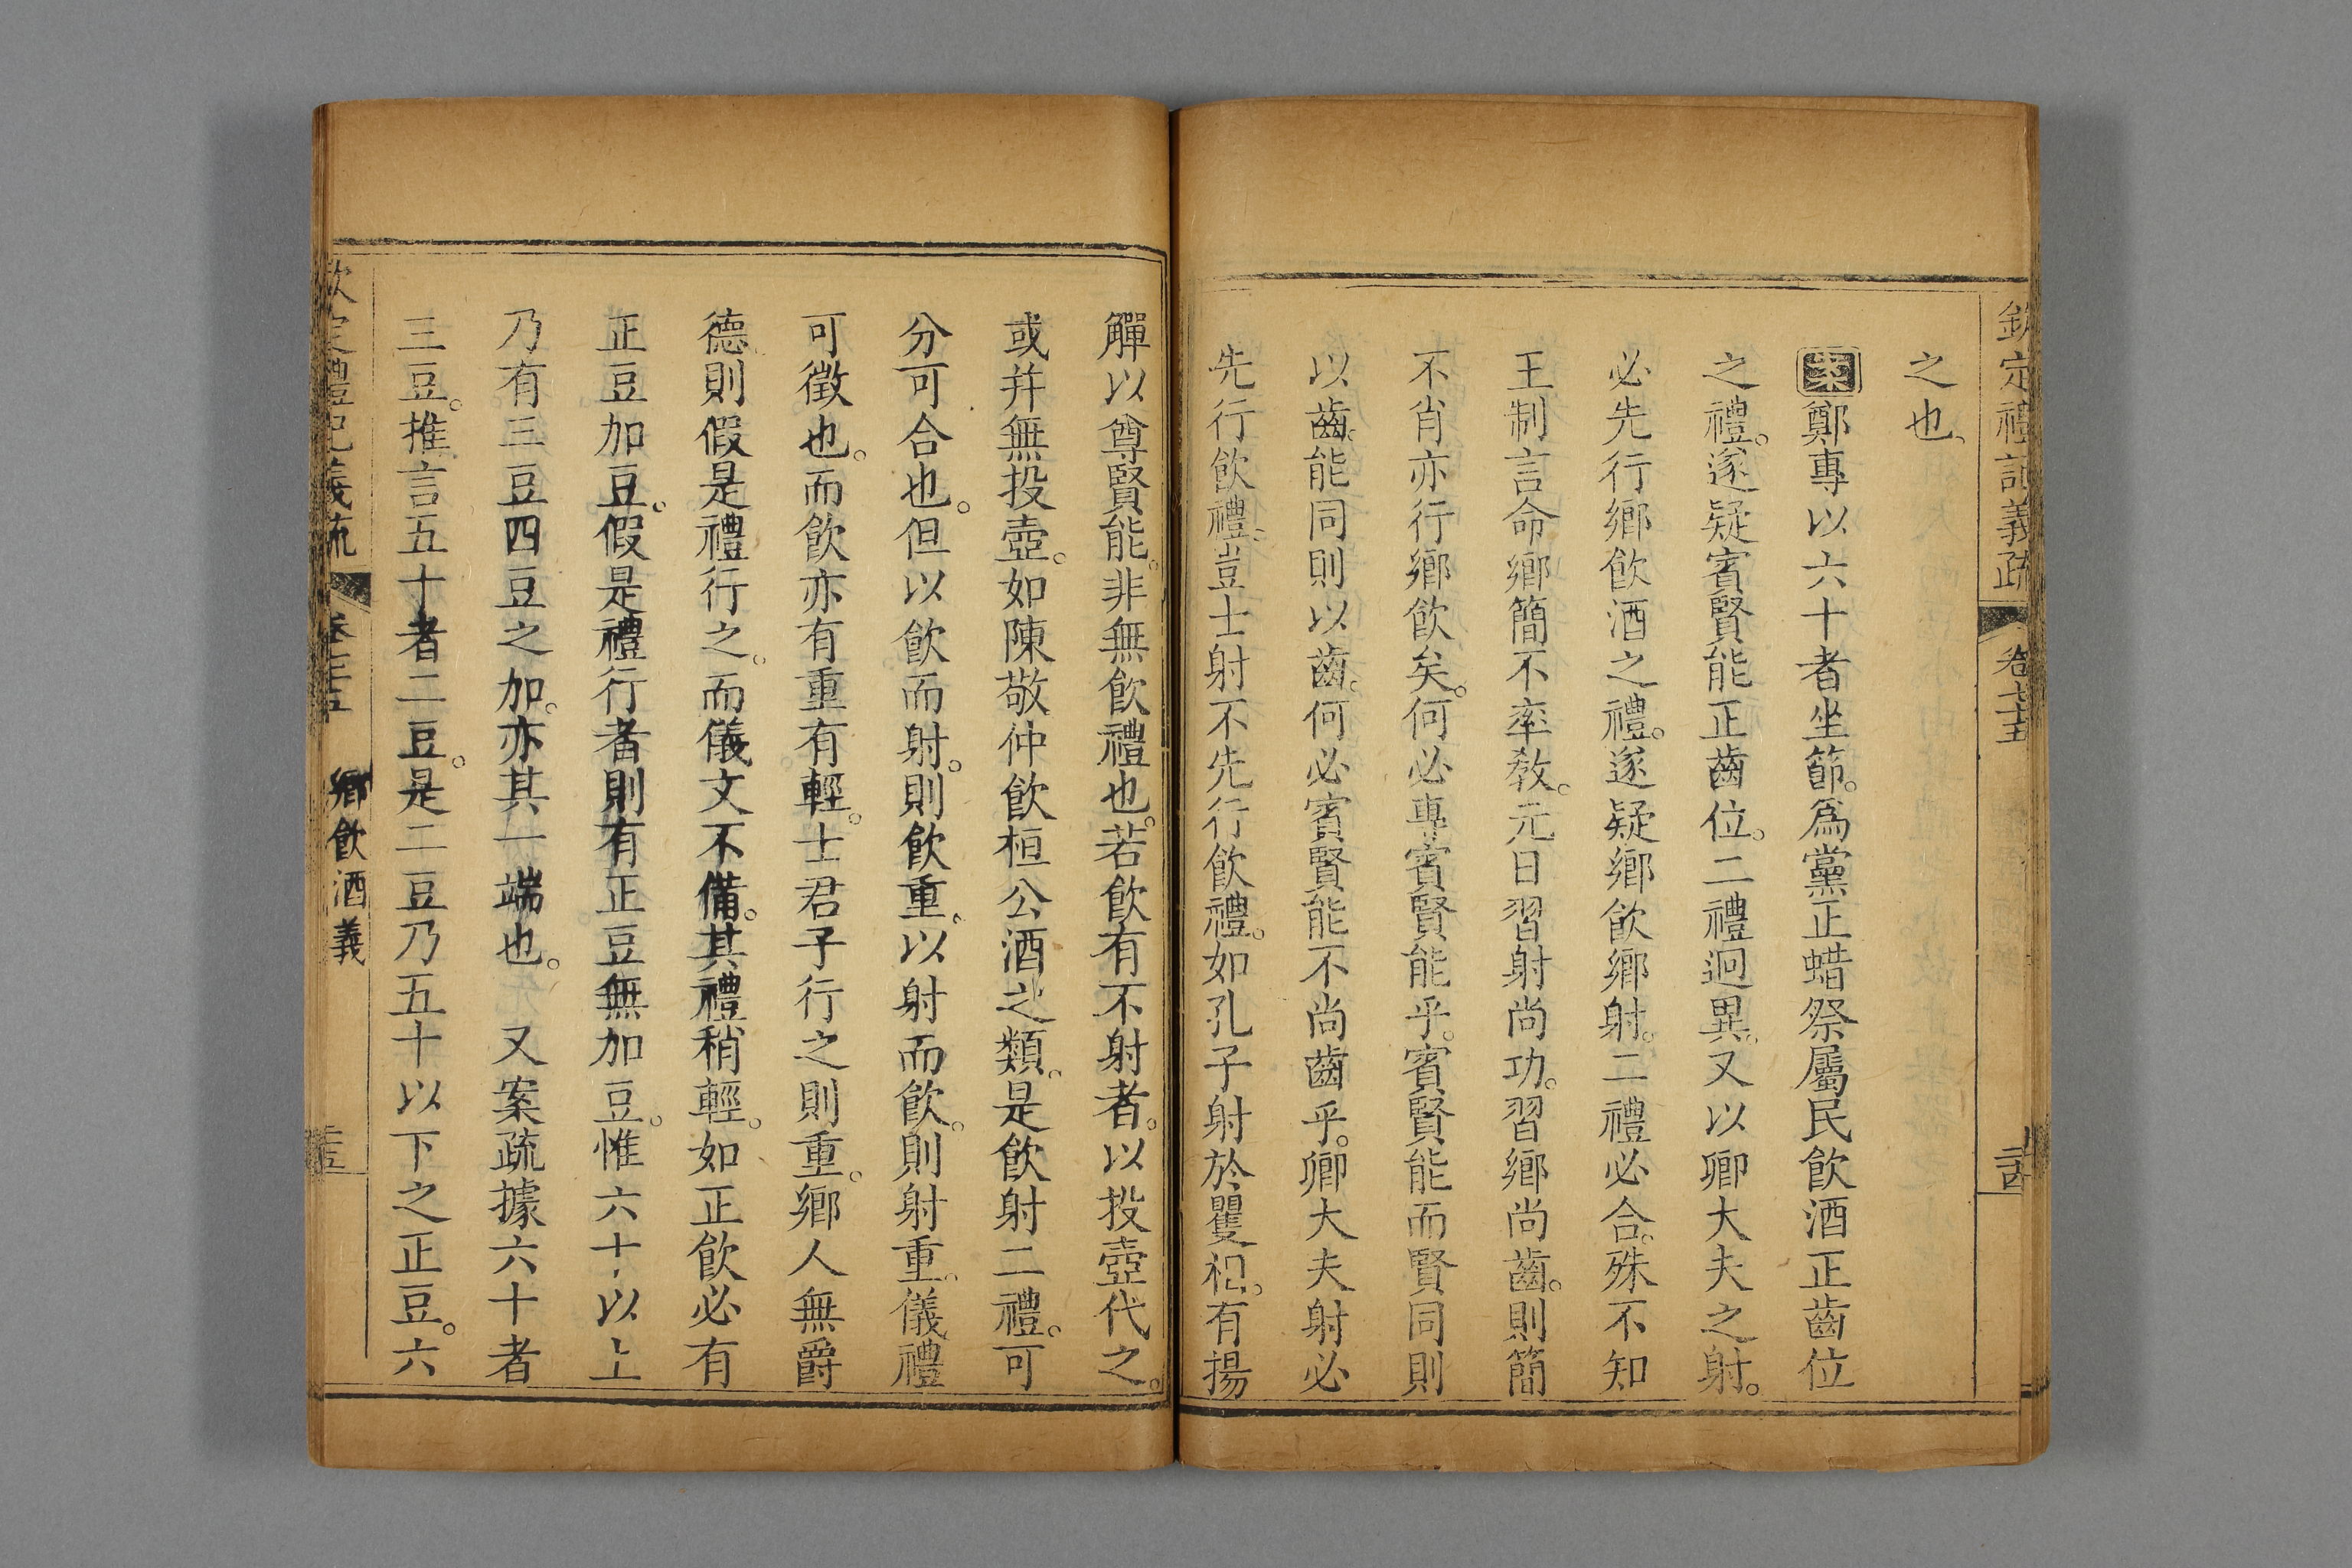 欽定禮記義疏 卷七十五 二十四
之也、
案鄭專以六十者坐節。爲黨正蜡祭屬民飲酒正齒位
之禮。遂疑賓賢能正齒位。二禮迥異。又以卿大夫之射。
必先行鄉飲酒之禮。遂疑鄉飲鄉射。二禮必合。殊不知
王制言命鄉簡不率教。元日習射尚功。習鄉尚齒。則簡
不肖亦行鄉飲矣。何必專賓賢能乎。賓賢能而賢同則
以齒。能同則以齒。何必賓賢能不尚齒乎。卿大夫射必
先行飲禮。豈士射不先行飲禮。如孔子射於矍相。有揚
觶以尊賢能。非無飲禮也。若飲有不射者。以投壺代之。
或并無投壺。如陳敬仲飲桓公酒之類。是飲射二禮。可
分可合也。但以飲而射。則飲重、以射而飲。則射重。儀禮
可徵也。而飲亦有重有輕。士君子行之則重。鄉人無爵
德則假是禮行之。而儀文不備。其禮稍輕。如正飲必有
正豆加豆。假是禮行者則有正豆無加豆。惟六十以上
乃有三豆四豆之加。亦其一端也。 又案疏據六十者
三豆。推言五十者二豆。是二豆乃五十以下之正豆。六
欽定禮記義疏 卷七十五 鄉飲酒義 二十五